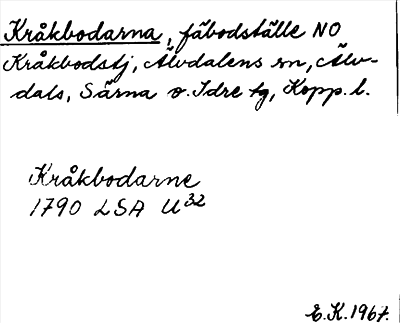 Kråkbodarna, fäbodställe NO
Kråkbodstj, Älvdalens sn, Älv-
dals, Särna o. Idre tg, Kopp. l.
Kråkbodarne
1790 LSA U32
E.K. 1967.